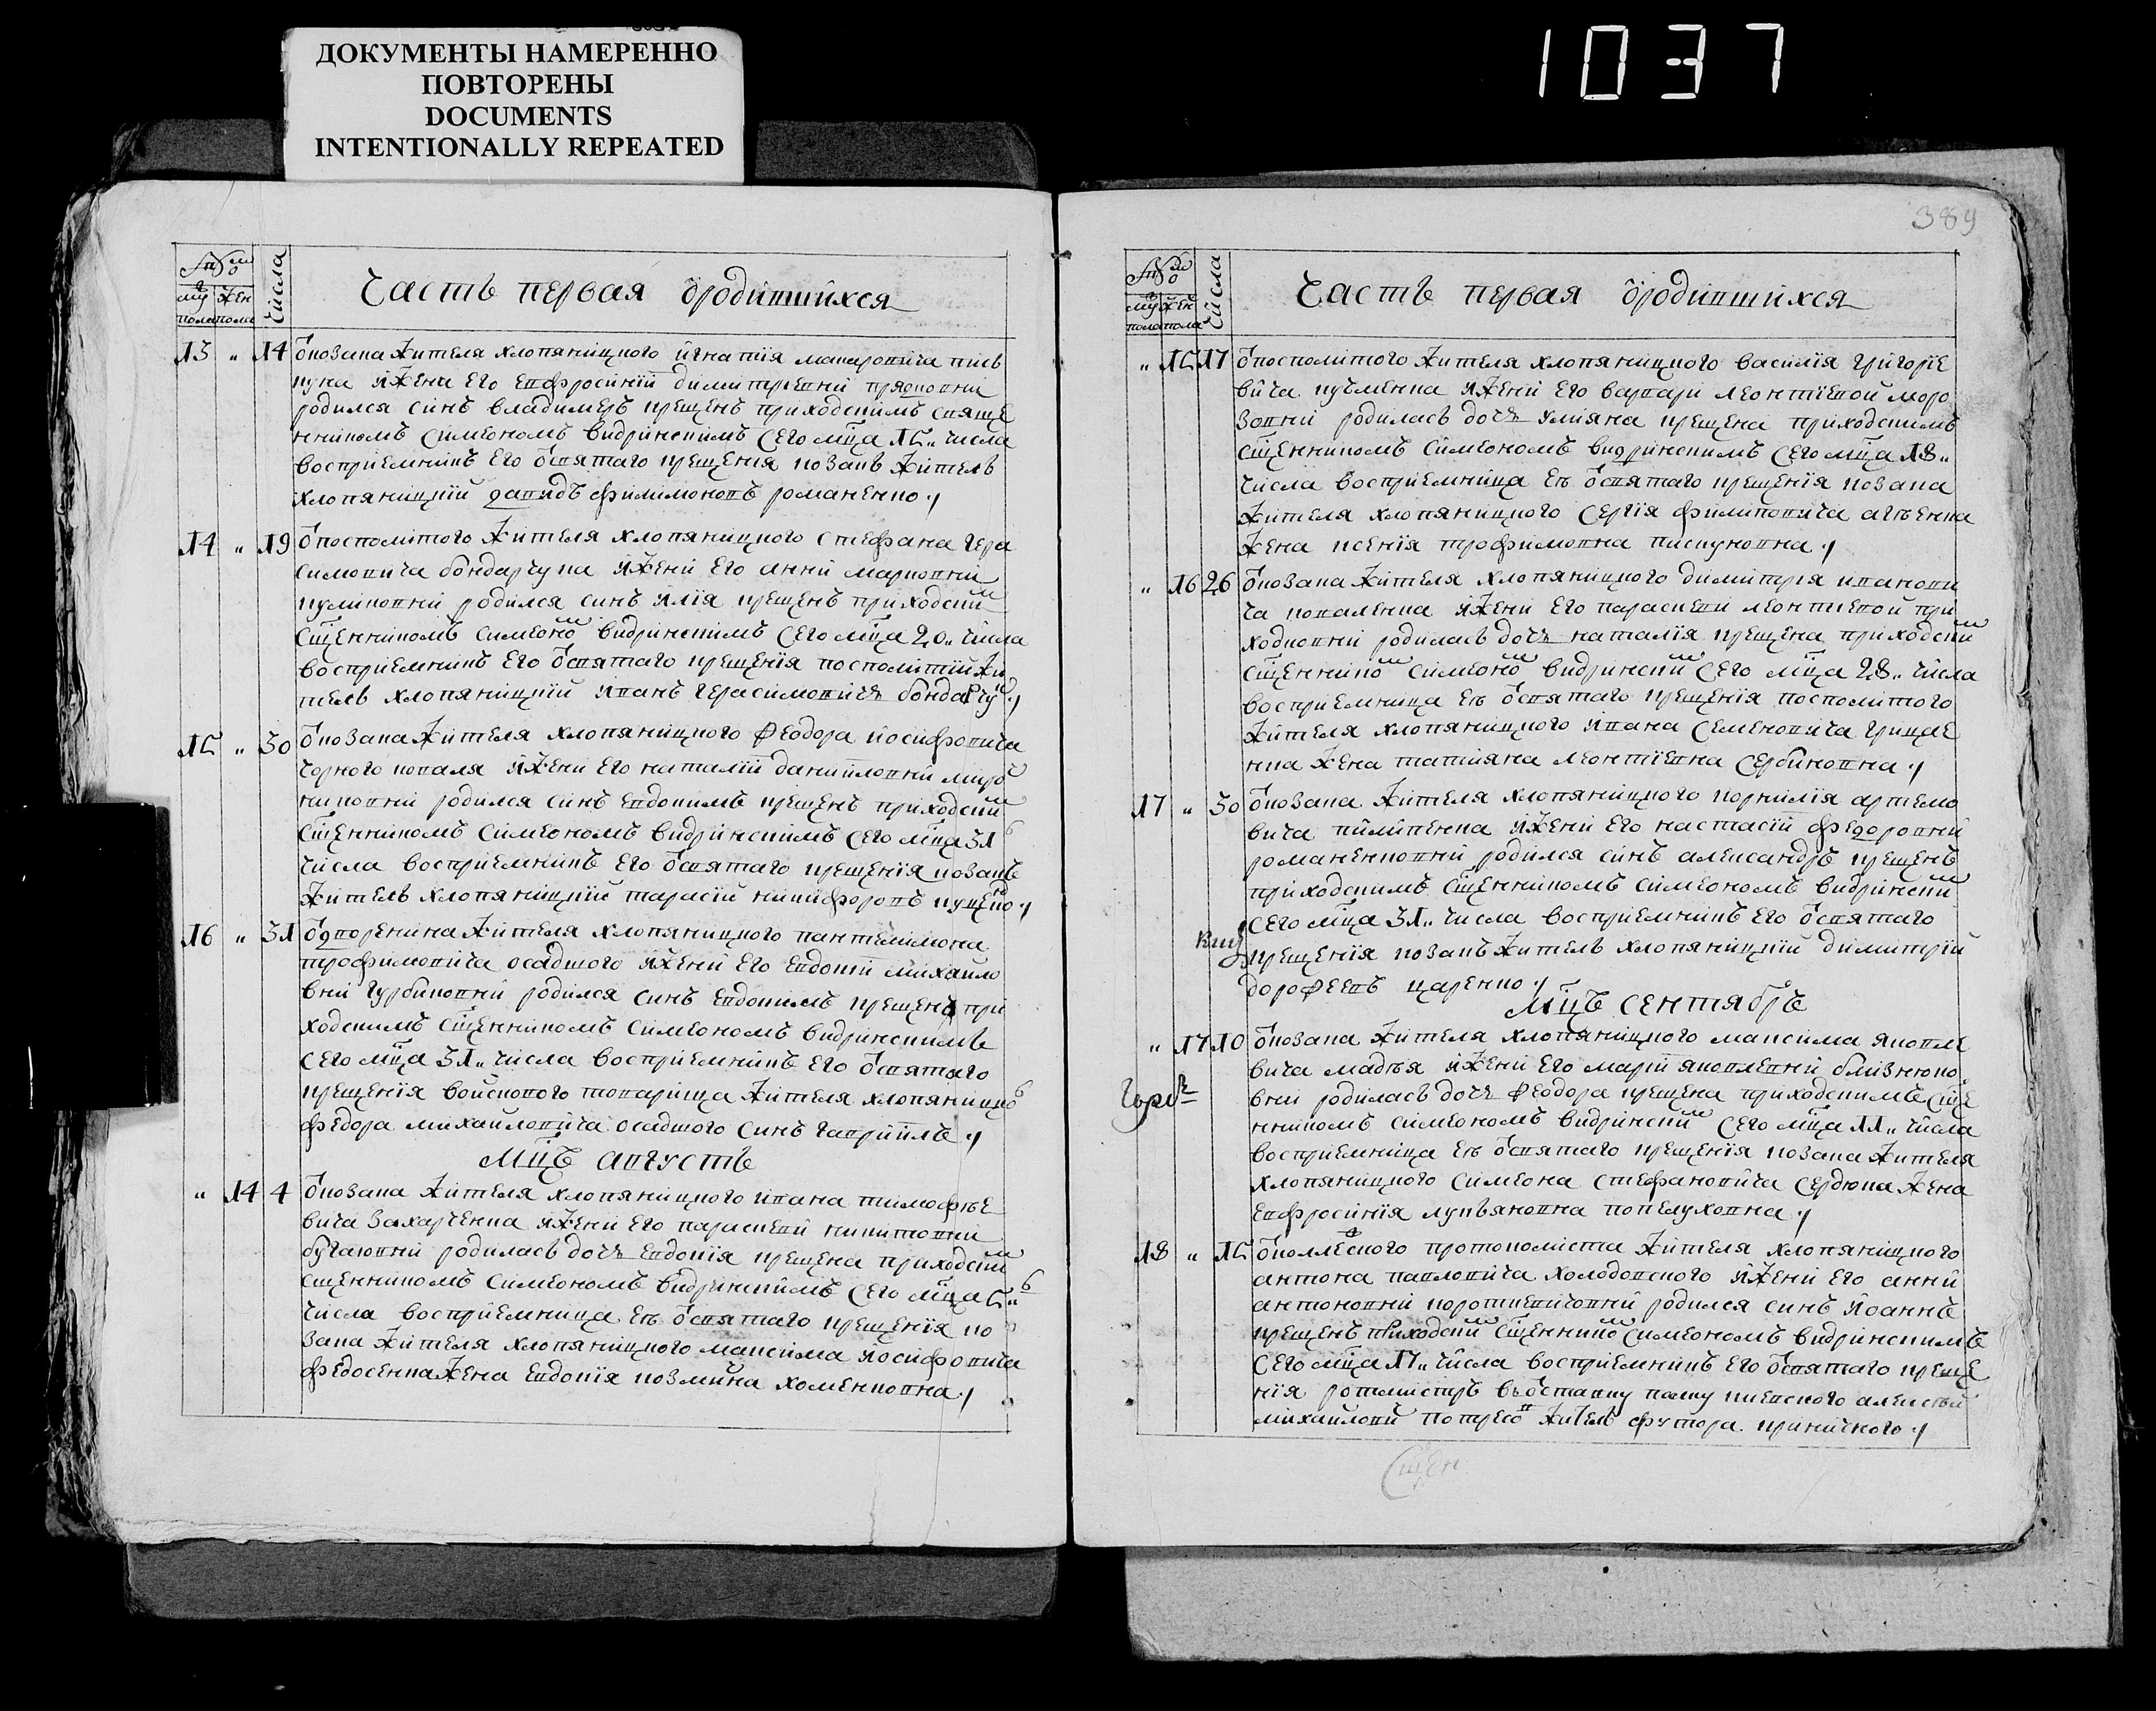 ДОКУМЕНТЫ НАМЕРЕННО
ПОВТОРЕНЫ
DOCUMENTS
INTENTIONALLY REPEATED
1037
числа
муж жен
пола пола
Часть первая ѿ родившихся
13 " 14 У козака жителя хлопяницкого Игнатия Макаровича пись
куна и жени его Евфросинїи Димитриевни
родился синъ Владимеръ крещенъ приходскимъ свяще
нникомъ Симеономъ Видринскимъ сего мца 15 " числа
восприемникъ его ѿ святаго крещенїя козакъ житель
хлопяницкїй давидъ Филимоновъ романенко ./
14 " 19 У посполитого жителя хлопяницкого Стефана Гера
симовича бондарчука и жени его анни марковни
куликовни родился синъ илїя крещенъ приходским
сщенникомъ Симеоном Видринскимъ сего мца 20 " числа
восприемникъ его ѿ святаго крещенїя посполитїй жи
тель хлопяницкїй иванъ Герасимовичъ бондарчук ./
15 " 30 У козака жителя хлопяницкого Феодора иосифовича
чорного коваля и жени его наталїи данииловни миро
никовни родился синъ Евдокимъ крещенъ приходским
сщенникомъ Симеономъ Видринскимъ сего мца 31
числа восприемникъ его ѿ святаго крещенїя козакъ
житель хлопяницкїй тарасїй никифоровъ куценко ./
16 " 31 У дворенина жителя хлопяницкого пантелимона
трофимовича осадшого и жени его Евдокїи михайло
вни гурбиковни родился синъ Евдокимъ крещенъ при
ходскимъ сщенникомъ Симеономъ Видринскимъ
сего мца 31 " числа восприемникъ его ѿ святаго
крещенїя войскового товарища жителя хлопяницкого
Федора михайловича осадшого синъ гавриилъ ./
Мцъ августъ
" 14 4 У козака жителя хлопяницкого ивана тимофѣе
вича захарченка и жени его параскевїи никитовни
бугаювни родилась дочъ Евдокїя крещена приходским
сщенникомъ Симеономъ Видринскимъ сего мца 5 "
числа восприемница еѣ ѿ святаго крещенїя ко
зака жителя хлопяницкого максима иосифовича
федосенка жена Евдокїя козмина хоменковна ./
389
числа
муж жен
пола пола
Часть первая ѿ родившихся
" 15 17 У посполитого жителя хлопяницкого василїя григорїе
вича кучменка и жени его варвари леонтїевой моро
зовни родилась дочъ улияна крещена приходскимъ
сщенникомъ Симеономъ Видринскимъ сего мца 18 "
числа восприемница еѣ ѿ святаго крещенїя козака
жителя хлопяницкого Сергїя филиповича
жена ксенїя трофимовна пискуновна ./
" 16 26 У козака жителя хлопяницкого димитрїя иванови
ча коваленка и жени его параскевїи леонтиевой при
ходковни родилась дочъ наталїя крещена приходским
сщенником Симеоном Видринским сего мца 28 " числа
восприемница еѣ ѿ святаго крещенїя посполитого
жителя хлопяницкого ивана Семеновича грицае
нка жена татїяна леонтїевна сербиновна ./
17 " 30 У козака жителя хлопяницкого корнилїя артемо
вича пилипенка и жени его настасїи федоровни
романенковни родился синъ александръ крещенъ
приходскимъ сщенникомъ Симеономъ Видринским
сего мца 31 " числа восприемникъ его ѿ святаго
крещенїя козакъ житель хлопяницкїй димитрїй
дорофеевъ царенко ./
Мцъ сентябръ
" 17 10 У козака жителя хлопяницкого максима яковле
вича мадѣя и жени его марїи яковлевни близнюко
вни родилась дочъ Феодора крещена приходскимъ сще
нникомъ Симеономъ Видринским сего мца 11 " числа
восприемница еѣ ѿ святаго крещенїя козака жителя
хлопяницкого Симеона Стефановича Сердюка жена
Евфросинїя лукъяновна попелуховна ./
18 " 15 У протоколиста жителя хлопяницкого
антона павловича холодовского и жени его анни
антоновни короткевичовни родился синъ иоаннъ
крещенъ приходским сщенником Симеономъ Видринскимъ
сего мца 17 " числа восприемникъ его ѿ святаго креще
нїя ротмистръ въ ѿставку полку киевского алексѣй
михайлов житель футора криничного ./
Сщен